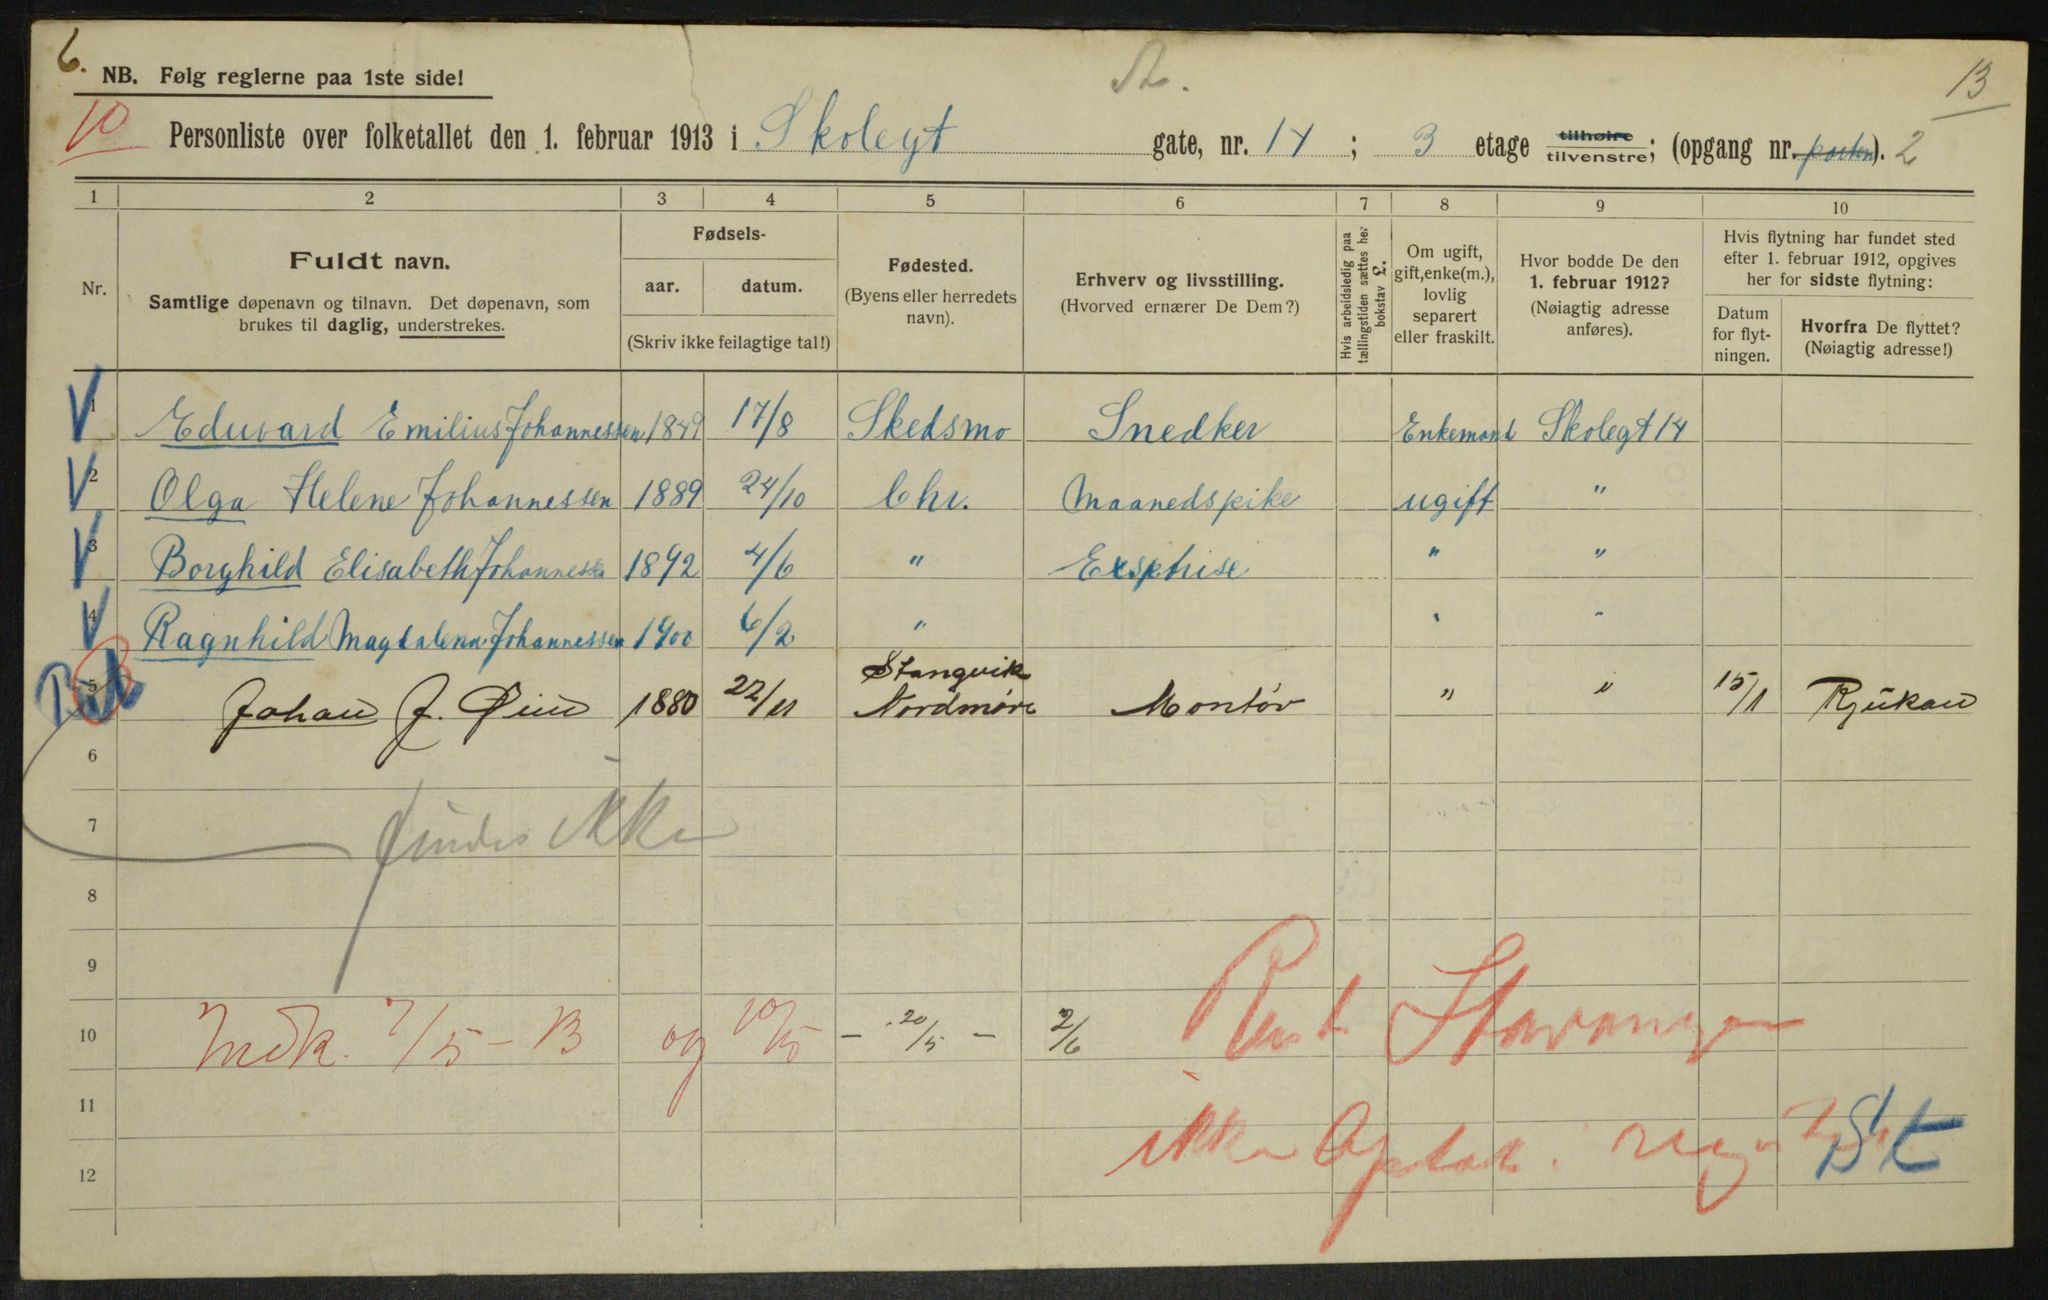 6.
NB. Følg reglerne paa 1ste side!
13
10 Personliste over folketallet den 1. februar 1913 i Skolegt gate, nr. 14 ; 3 etage tilhøire tilvenstre; (opgang nr. porten). 2
1 2 3 4 5 6 7 8 9 10
Nr.
Fuldt navn.
Samtlige døpenavn og tilnavn. Det døpenavn, som
brukes til daglig, understrekes.
Fødsels-
aar. datum.
(Skriv ikke feilagtige tal!)
Fødested.
(Byens eller herredets
navn).
Erhverv og livsstilling.
(Hvorved ernærer De Dem?)
Hvis arbeidsledig paa
tællingstiden sættes her
bokstav £.
Om ugift,
gift, enke(m.),
lovlig
separert
eller fraskilt.
Hvor bodde De den
1. februar 1912?
(Nøiagtig adresse
anføres).
Hvis flytning har fundet sted
efter 1. februar 1912, opgives
her for sidste flytning:
Datum
for flyt-
ningen.
Hvorfra De flyttet?
(Nøiagtig adresse!)
1 Edvard Emilius Johannessen 1849 17/8 Skedsmo Snedker Enkemand Skolegt 14
2 Olga Helene Johannessen 1889 24/10 Chr. Maanedspike ugift "
3 Borghild Elisabeth Johannessen 1892 4/6 " Exsptrise " "
4 Ragnhild Magdalena Johannessen 1900 6/2 " " "
5 Johan J. Øien 1880 22/11 Stangvik Nordmøre Montør " " 15/1 Rjukan
6
7 findes ikke
8
9
10 7/5 - B og 10/5 - 20/5 - 2/6 Stavanger
11
12 ikke